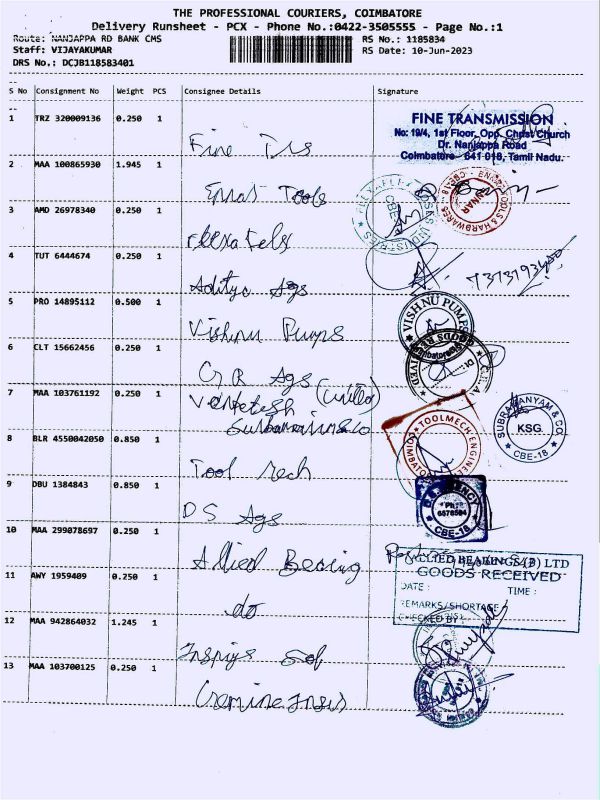 THE PROFESSIONAL COURIERS, COIMBATORE
Delivery Runsheet - PCX - Phone No.:0422-3505555 - Page No.:1
Route: NANJAPPA RD BANK CMS RS No.: 1185834
Staff: VIJAYAKUMAR RS Date: 10-Jun-2023
DRS No.: DCJB118583401
S No Consignment No Weight PCS Consignee Details Signature
1 TRZ 320009136 0.250 1
FINE TRANSMISSION
No: 19/4, 1st Floor, Opp. Christ Church
Dr. Nanjappa Road
Coimbatore - 641 018, Tamil Nadu.
Fine
2 MAA 100865930 1.945 1
Tools
3 AMD 26978340 0.250 1
4 TUT 6444674 0.250 1
Aditya Ags
5 PRO 14895112 0.500 1
VISHNU PUMPS
GOODS RECEIVED
Vishnu Pumps
6 CLT 15662456 0.250 1
G R Ags
7 MAA 103761192 0.250 1
Venketesh
SUBRAMANYAM & CO.
KSG.
CBE-18
8 BLR 4550042050 0.850 1
TOOLMECH ENGINEE
COIMBATO
Tool Mech
9 DBU 1384843 0.850 1
CBE-18
DS Ags
10 MAA 299078697 0.250 1
Allied Bearing
ALLIED BEARINGS(P) LTD
GOODS RECEIVED
DATE : TIME :
REMARKS/SHORTAGE
CHECKED BY
11 AWY 1959409 0.250 1
do
12 MAA 942864032 1.245 1
13 MAA 103700125 0.250 1